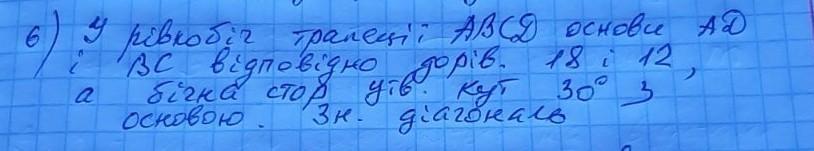 6) У рівнобіч трапеції ABCD основи AD
і BC відповідно дорів. 18 і 12,
а бічна стор утв. кут 30° з
основою. Зн. діагональ